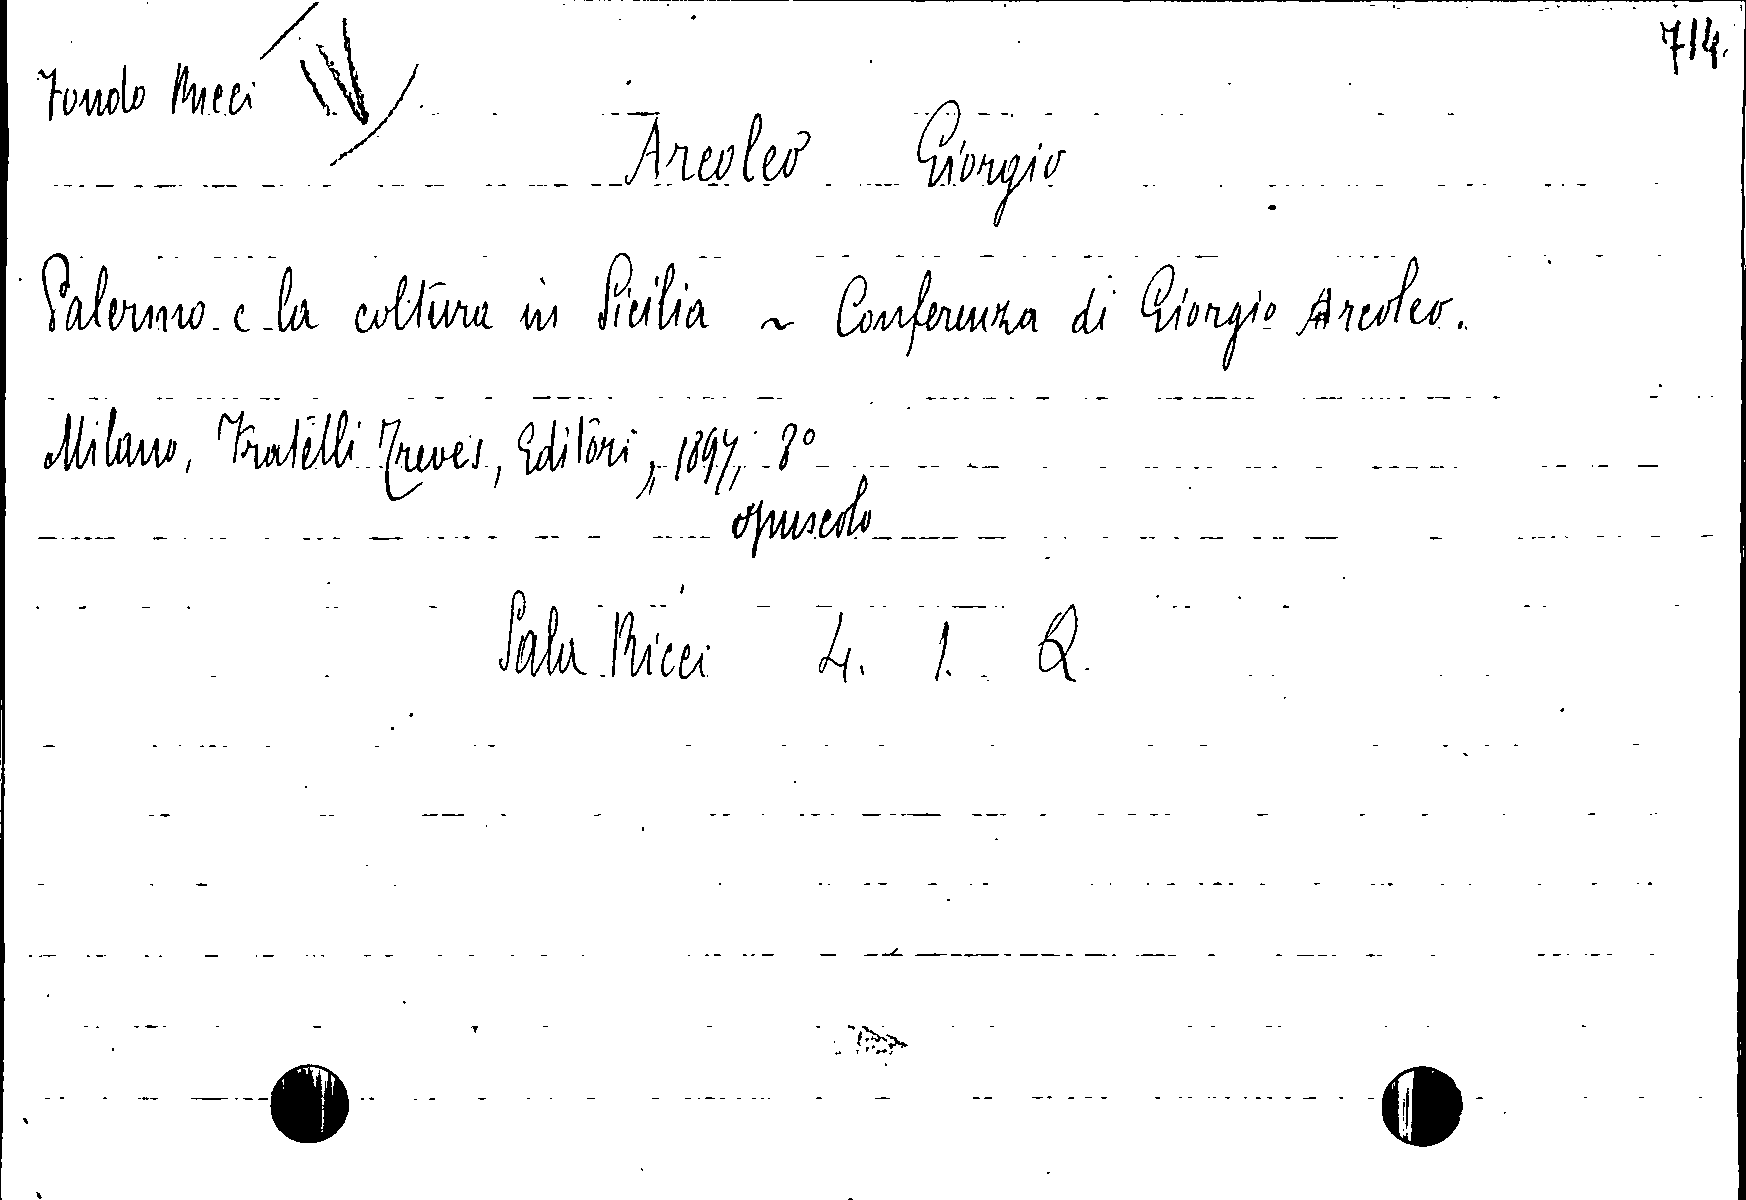 714.
Fondo Ricci IV
Arcoleo Giorgio
Palermo e la coltura in Sicilia ~ Conferenza di Giorgio Arcoleo.
Milano, Fratelli Treves, Editori, 1897, 8°
opuscolo
Sala Ricci 4. 1. Q.